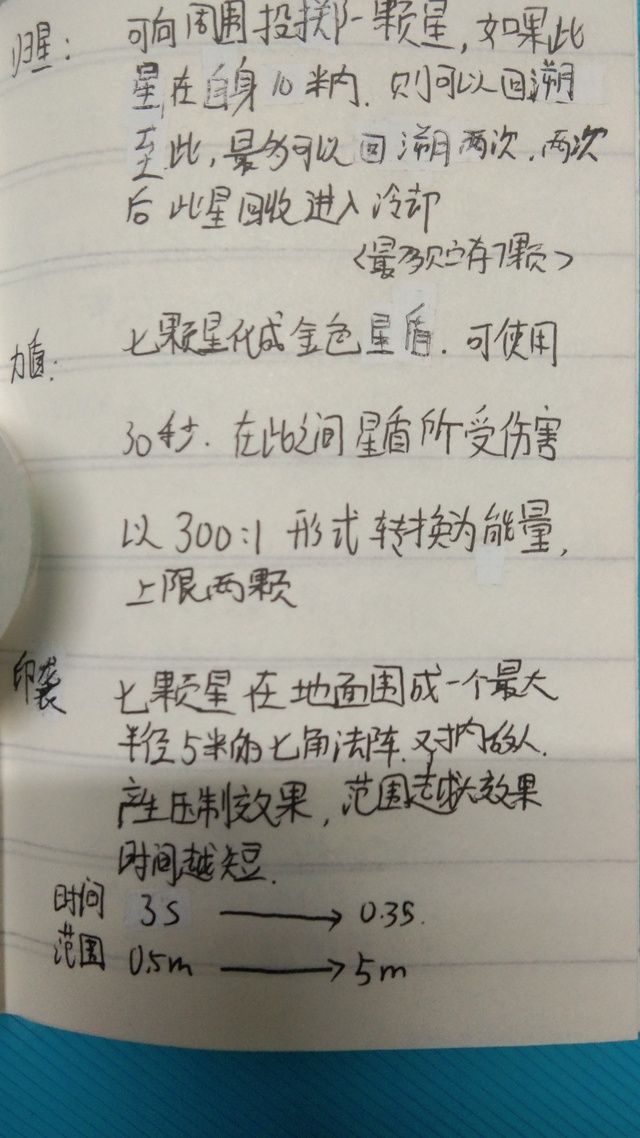 归星: 可向周围投掷一颗星,如果此
星在自身10米内.则可以回溯
至此,最多可以回溯两次.两次
后此星回收进入冷却
<最多贮存7颗>
力盾: 七颗星化成金色星盾.可使用
30秒.在此之间星盾所受伤害
以300:1形式转换为能量,
上限两颗
印袭 七颗星在地面围成一个最大
半径5米的七角法阵.对内敌人.
产生压制效果,范围越大效果
时间越短.
时间 3s → 0.3s.
范围 0.5m → 5m